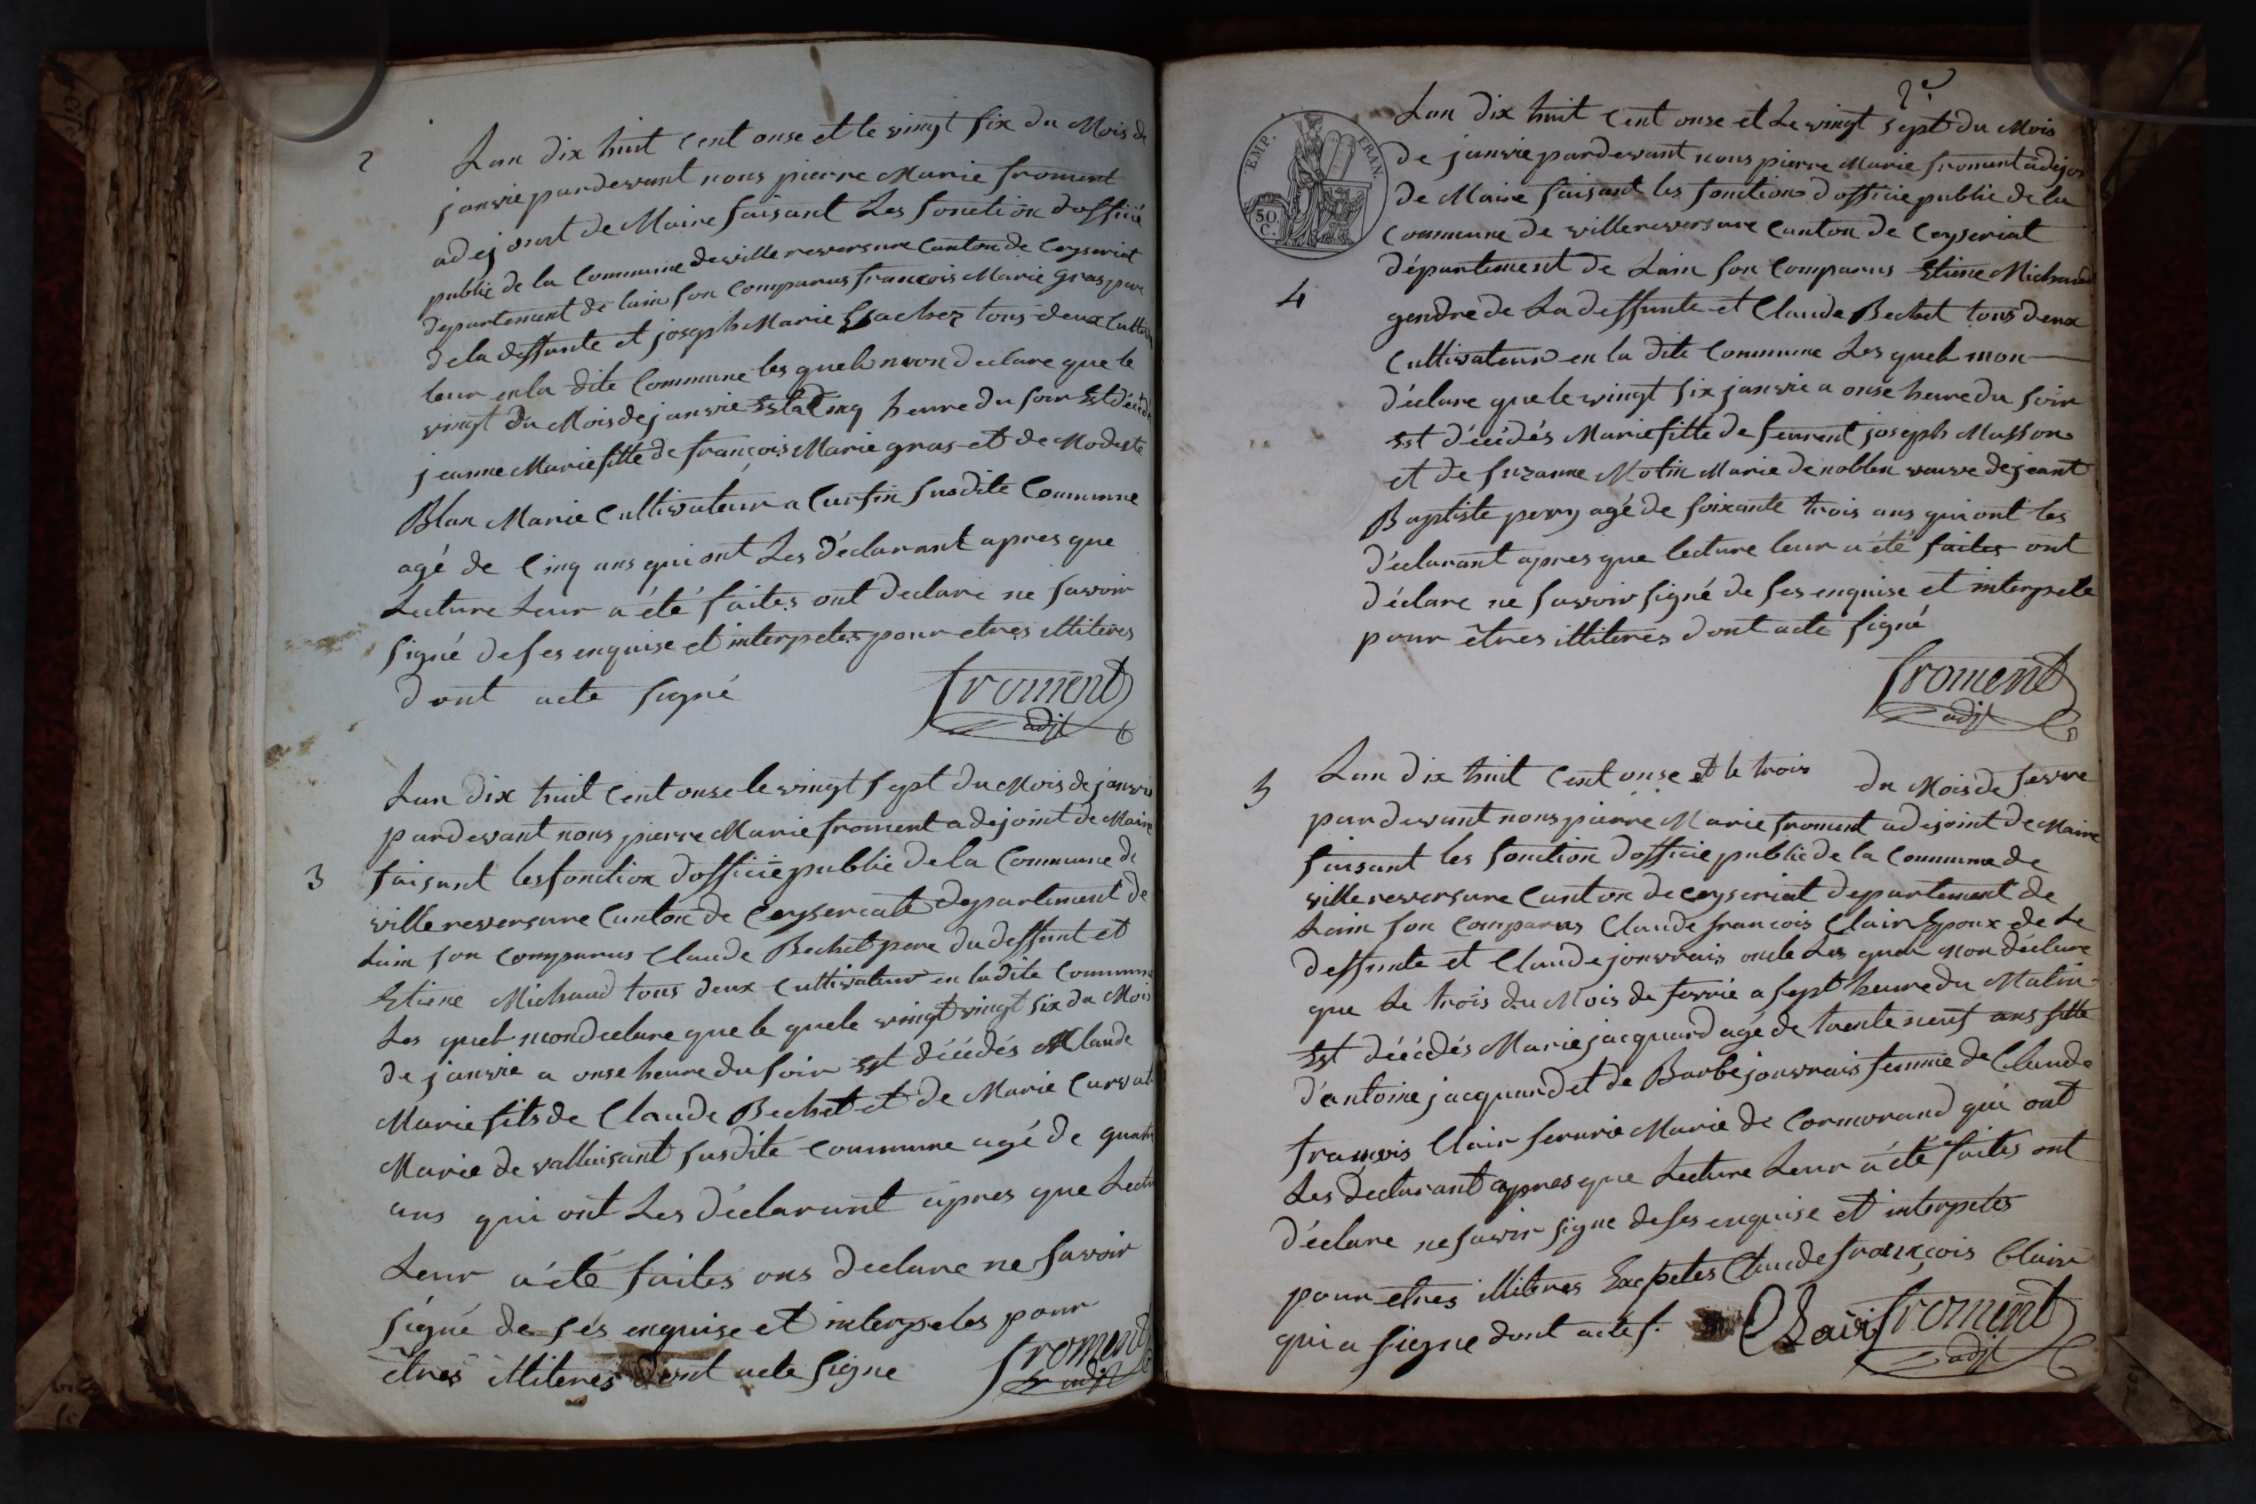 2
Lan dix huit cent onse et le vingt six du Mois de
janvie pardevant nous pierre Marie froment
adejoint de Maire faisant Les fonction dofficié
public de la Commune de villereversure Canton de Ceyseriat
departement de lain son Comparus francois Marie gras pere
dela deffunte et joseph Marie tous deux Cultiva
teur en la dite Commune les quels mon declare que le
vingt du Mois de janvie Esta Cinq heure du soir Est décédé
jeanne Marie fille de francois Marie gras et de Modeste
Blan Marie Cultivateur a Curfin susdite Commune
agé de Cinq ans qui ont Les déclarant apres que
Lecture Leur a été faites ont declaré ne savoir
signé de ses enquise et interpeles pour etres illiteres
dont acte signé
froment
adjt
3
Lan dix huit cent onse le vingt sept du Mois de janvie
pardevant nous pierre Marie froment adejoint de Maire
faisant les fonction dofficié public de la Commune de
villereversure Canton de Ceyseriat departement de
Lain son Comparus Claude Bechet pere du deffunt et
Etiene Michaud tous deux Cultivateur en ladite Commune
Les quels mon declare que le quele vingt vingt six du Mois
de janvie a onse heure du soir Est décédés Claude
Marie fils de Claude Bechet et de Marie Curvat
Marie de valluisant susdite Commune agé de quatre
ans qui ont Les déclarant apres que Lectu
Leur a été faites ons declare ne savoir
signé de ses enquise et interpeles pour
êtres illiteres dont acte signe
froment
adjt
2e
EMP. FRAN.
50.
C.
4
Lan dix huit Cent onse et Le vingt sept du Mois
de janvie pardevant nous pierre Marie froment adejoi
de Maire faisant les fonction dofficie public de la
Commune de villereversure Canton de Ceyseriat
département de Lain son Comparus Etiene Michaud
gendre de La deffunte et Claude Bechet tous deux
Cultivateur en la dite Commune Les quels mon
déclare que le vingt six janvie a onse heure du soir
Est décédés Marie fille de feurent joseph Masson
et de suzanne Motin Marie de noblen veuve de jeant
Baptiste pery agé de soixante trois ans qui ont les
déclarant apres que lecture leur a été faites ont
déclare ne savoir signé de ses enquise et interpele
pour êtres illiteres dont acte signé
froment
adjt
5
Lan dix huit Cent onse et le trois du Mois de fevre
pardevant nous pierre Marie froment adejoint de Maire
faisant les fonction dofficie public de la Commune de
villereversure Canton de ceyseriat departement de
Lain son comparus Claude francois Clair Epoux de Le
deffunte et Claude jouvrais oncle Les quel Mon déclare
que Le trois du Mois de fevrie a sept heure du Matin
Est décédés Marie jacquard agé de trente neuf ans fille
d'antoine jacquard et de Barbe jouvrais femme de Claude
francois Clair serurie Marie de Cormorand qui ont
Les declarant apres que Lecture Leur a été faites ont
déclare ne savoir signe de ses enquise et interpeles
pour etres illiteres Exepeles Claude françois Clair
qui a signe dont actes.
Clair froment
adjt